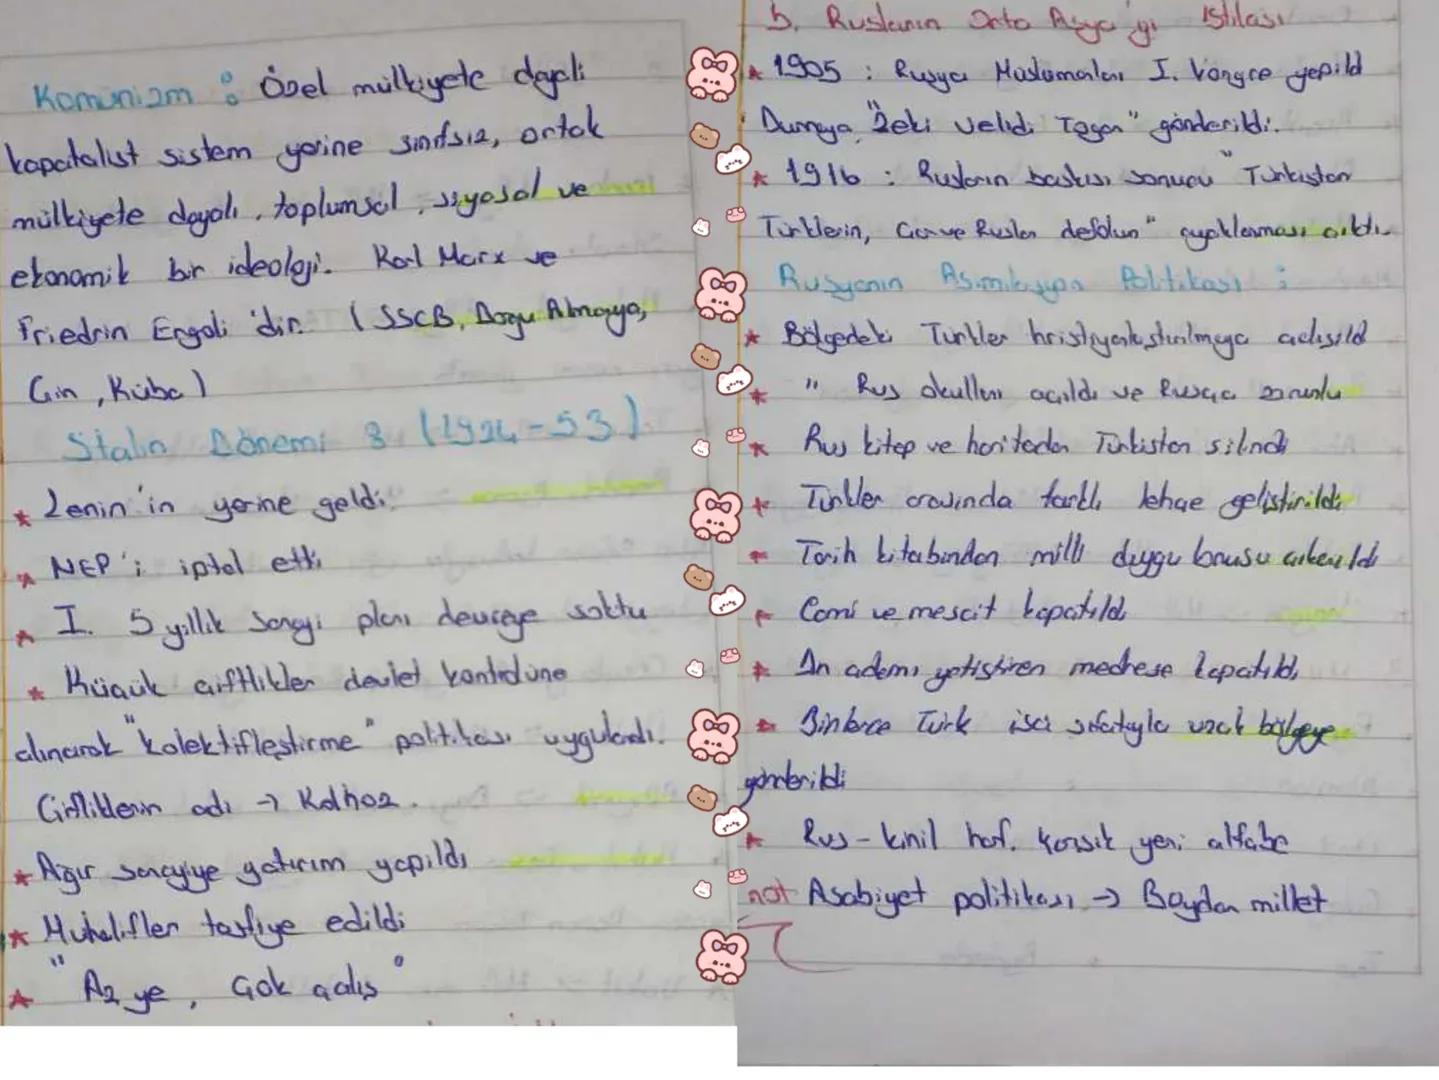 Komünizm : Özel mülkiyete dayalı
kapitalist sistem yerine sınıfsız, ortak
mülkiyete dayalı, toplumsal, siyasal ve
ekonomik bir ideoloji. Karl Marx ve
Friedrin Engali 'dir. (SSCB, Dogu Almanya,
Çin, Küba)
Stalin Dönemi : (1924-53)
* Lenin'in yerine geldi.
* NEP'i iptal etti
* I. 5 yıllık sanayi planı devreye soktu
* Küçük çiftlikler devlet kontrolüne
alınarak "kolektifleştirme" politikası uyguladı.
Çiftliklerin adı → Kolhoz.
* Ağır sanayiye yatırım yapıldı
* Muhalifler tasfiye edildi
* "Az ye, Çok çalış"
b. Rusların Orta Asya'yı İstilası
* 1905 : Rusya Müslümanları I. Kongre yapıldı
Dumaya "Zeki Velidi Togan" gönderildi.
* 1916 : Rusların baskısı sonucu "Türkistan
Türklerin, Çar ve Ruslar defolun" ayaklanması çıktı.
Rusyanın Asimilasyon Politikası :
* Bölgedeki Türkler hristiyanlaştırılmaya çalışıld
* " Rus okulları açıldı ve Rusça zorunlu
* Rus kitap ve haritadan Türkistan silindi
* Türkler arasında farklı lehçe geliştirildi
* Tarih kitabından milli duygu çıkarıldı
* Cami ve mescit kapatıldı
* Din adamı yetiştiren medrese kapatıldı
* Binlerce Türk işçi sıfatıyla uzak bölgeye
gönderildi
* Rus-kiril harf. karışık yeni alfabe
not Asabiyet politikası → Boydan millet